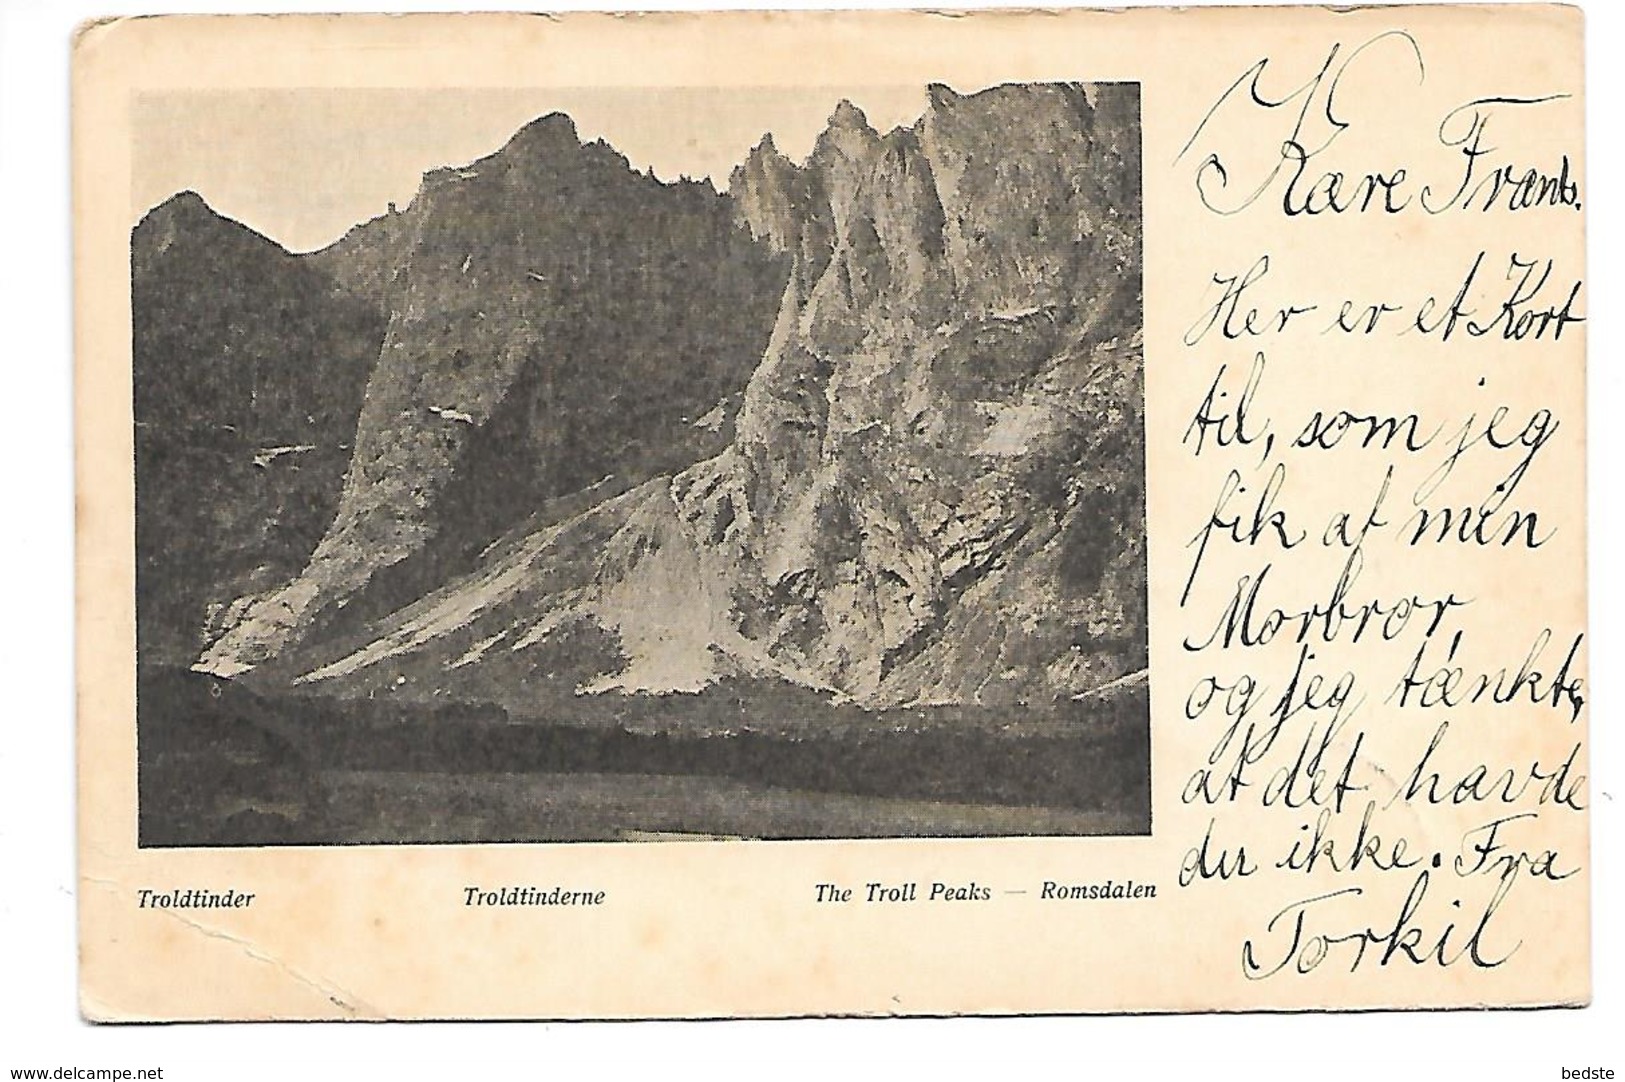 Kære Frants.
Her er et Kort
til, som jeg
fik af min
Morbror
og jeg tænkte,
at det havde
du ikke. Fra
Torkil
Troldtinder Troldtinderne The Troll Peaks — Romsdalen
www.delcampe.net bedste